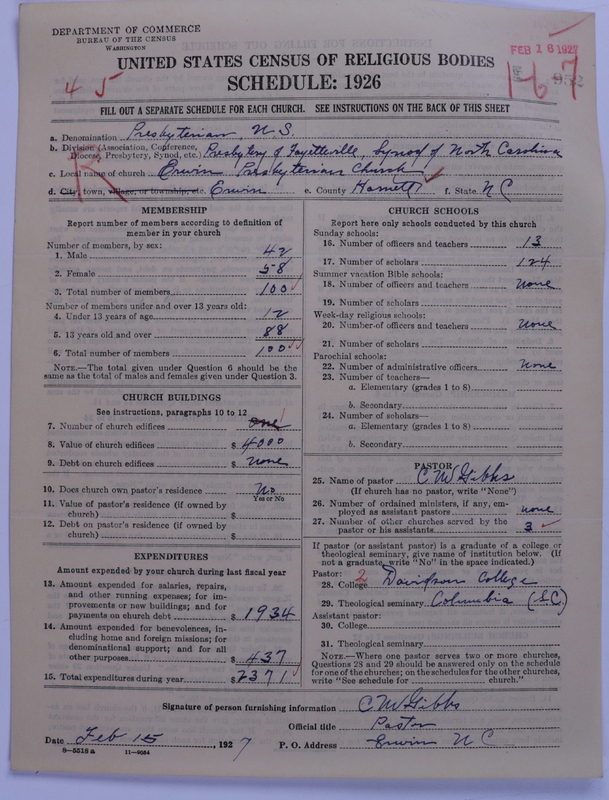 DEPARTMENT OF COMMERCE
BUREAU OF THE CENSUS
WASHINGTON
FEB 16 1927
4 5
UNITED STATES CENSUS OF RELIGIOUS BODIES
SCHEDULE: 1926
FILL OUT A SEPARATE SCHEDULE FOR EACH CHURCH. SEE INSTRUCTIONS ON THE BACK OF THIS SHEET
a. Denomination Presbyterian, U.S.
b. Division (Association, Conference, Diocese, Presbytery, Synod, etc.) Presbytery of Fayetteville, Synod of North Carolina
c. Local name of church Erwin Presbyterian Church
d. City, town, village, or township, etc. Erwin e. County Harnett f. State NC
MEMBERSHIP
Report number of members according to definition of member in your church
Number of members, by sex:
1. Male 42
2. Female 58
3. Total number of members 100
Number of members under and over 13 years old:
4. Under 13 years of age 12
5. 13 years old and over 88
6. Total number of members 100
NOTE.—The total given under Question 6 should be the same as the total of males and females given under Question 3.
CHURCH BUILDINGS
See instructions, paragraphs 10 to 12
7. Number of church edifices one
8. Value of church edifices $ 4000
9. Debt on church edifices $ none
10. Does church own pastor's residence No
Yes or No
11. Value of pastor's residence (if owned by church) $
12. Debt on pastor's residence (if owned by church) $
EXPENDITURES
Amount expended by your church during last fiscal year
13. Amount expended for salaries, repairs, and other running expenses; for improvements or new buildings; and for payments on church debt $ 1934
14. Amount expended for benevolences, including home and foreign missions; for denominational support; and for all other purposes $ 437
15. Total expenditures during year $ 2371
CHURCH SCHOOLS
Report here only schools conducted by this church
Sunday schools:
16. Number of officers and teachers 13
17. Number of scholars 124
Summer vacation Bible schools:
18. Number of officers and teachers none
19. Number of scholars
Week-day religious schools:
20. Number of officers and teachers none
21. Number of scholars
Parochial schools:
22. Number of administrative officers none
23. Number of teachers—
a. Elementary (grades 1 to 8)
b. Secondary
24. Number of scholars—
a. Elementary (grades 1 to 8)
b. Secondary
PASTOR
25. Name of pastor C W Gibbs
(If church has no pastor, write "None")
26. Number of ordained ministers, if any, employed as assistant pastors none
27. Number of other churches served by the pastor or his assistants 3
If pastor (or assistant pastor) is a graduate of a college or theological seminary, give name of institution below. (If not a graduate, write "No" in the space indicated.)
Pastor:
28. College 2 Davidson College
29. Theological seminary Columbia (S.C)
Assistant pastor:
30. College
31. Theological seminary
NOTE.—Where one pastor serves two or more churches, Questions 28 and 29 should be answered only on the schedule for one of the churches; on the schedules for the other churches, write "See schedule for church."
Signature of person furnishing information C W Gibbs
Official title Pastor
Date Feb 15, 1927 P. O. Address Erwin NC
8—5516 a 11—9054